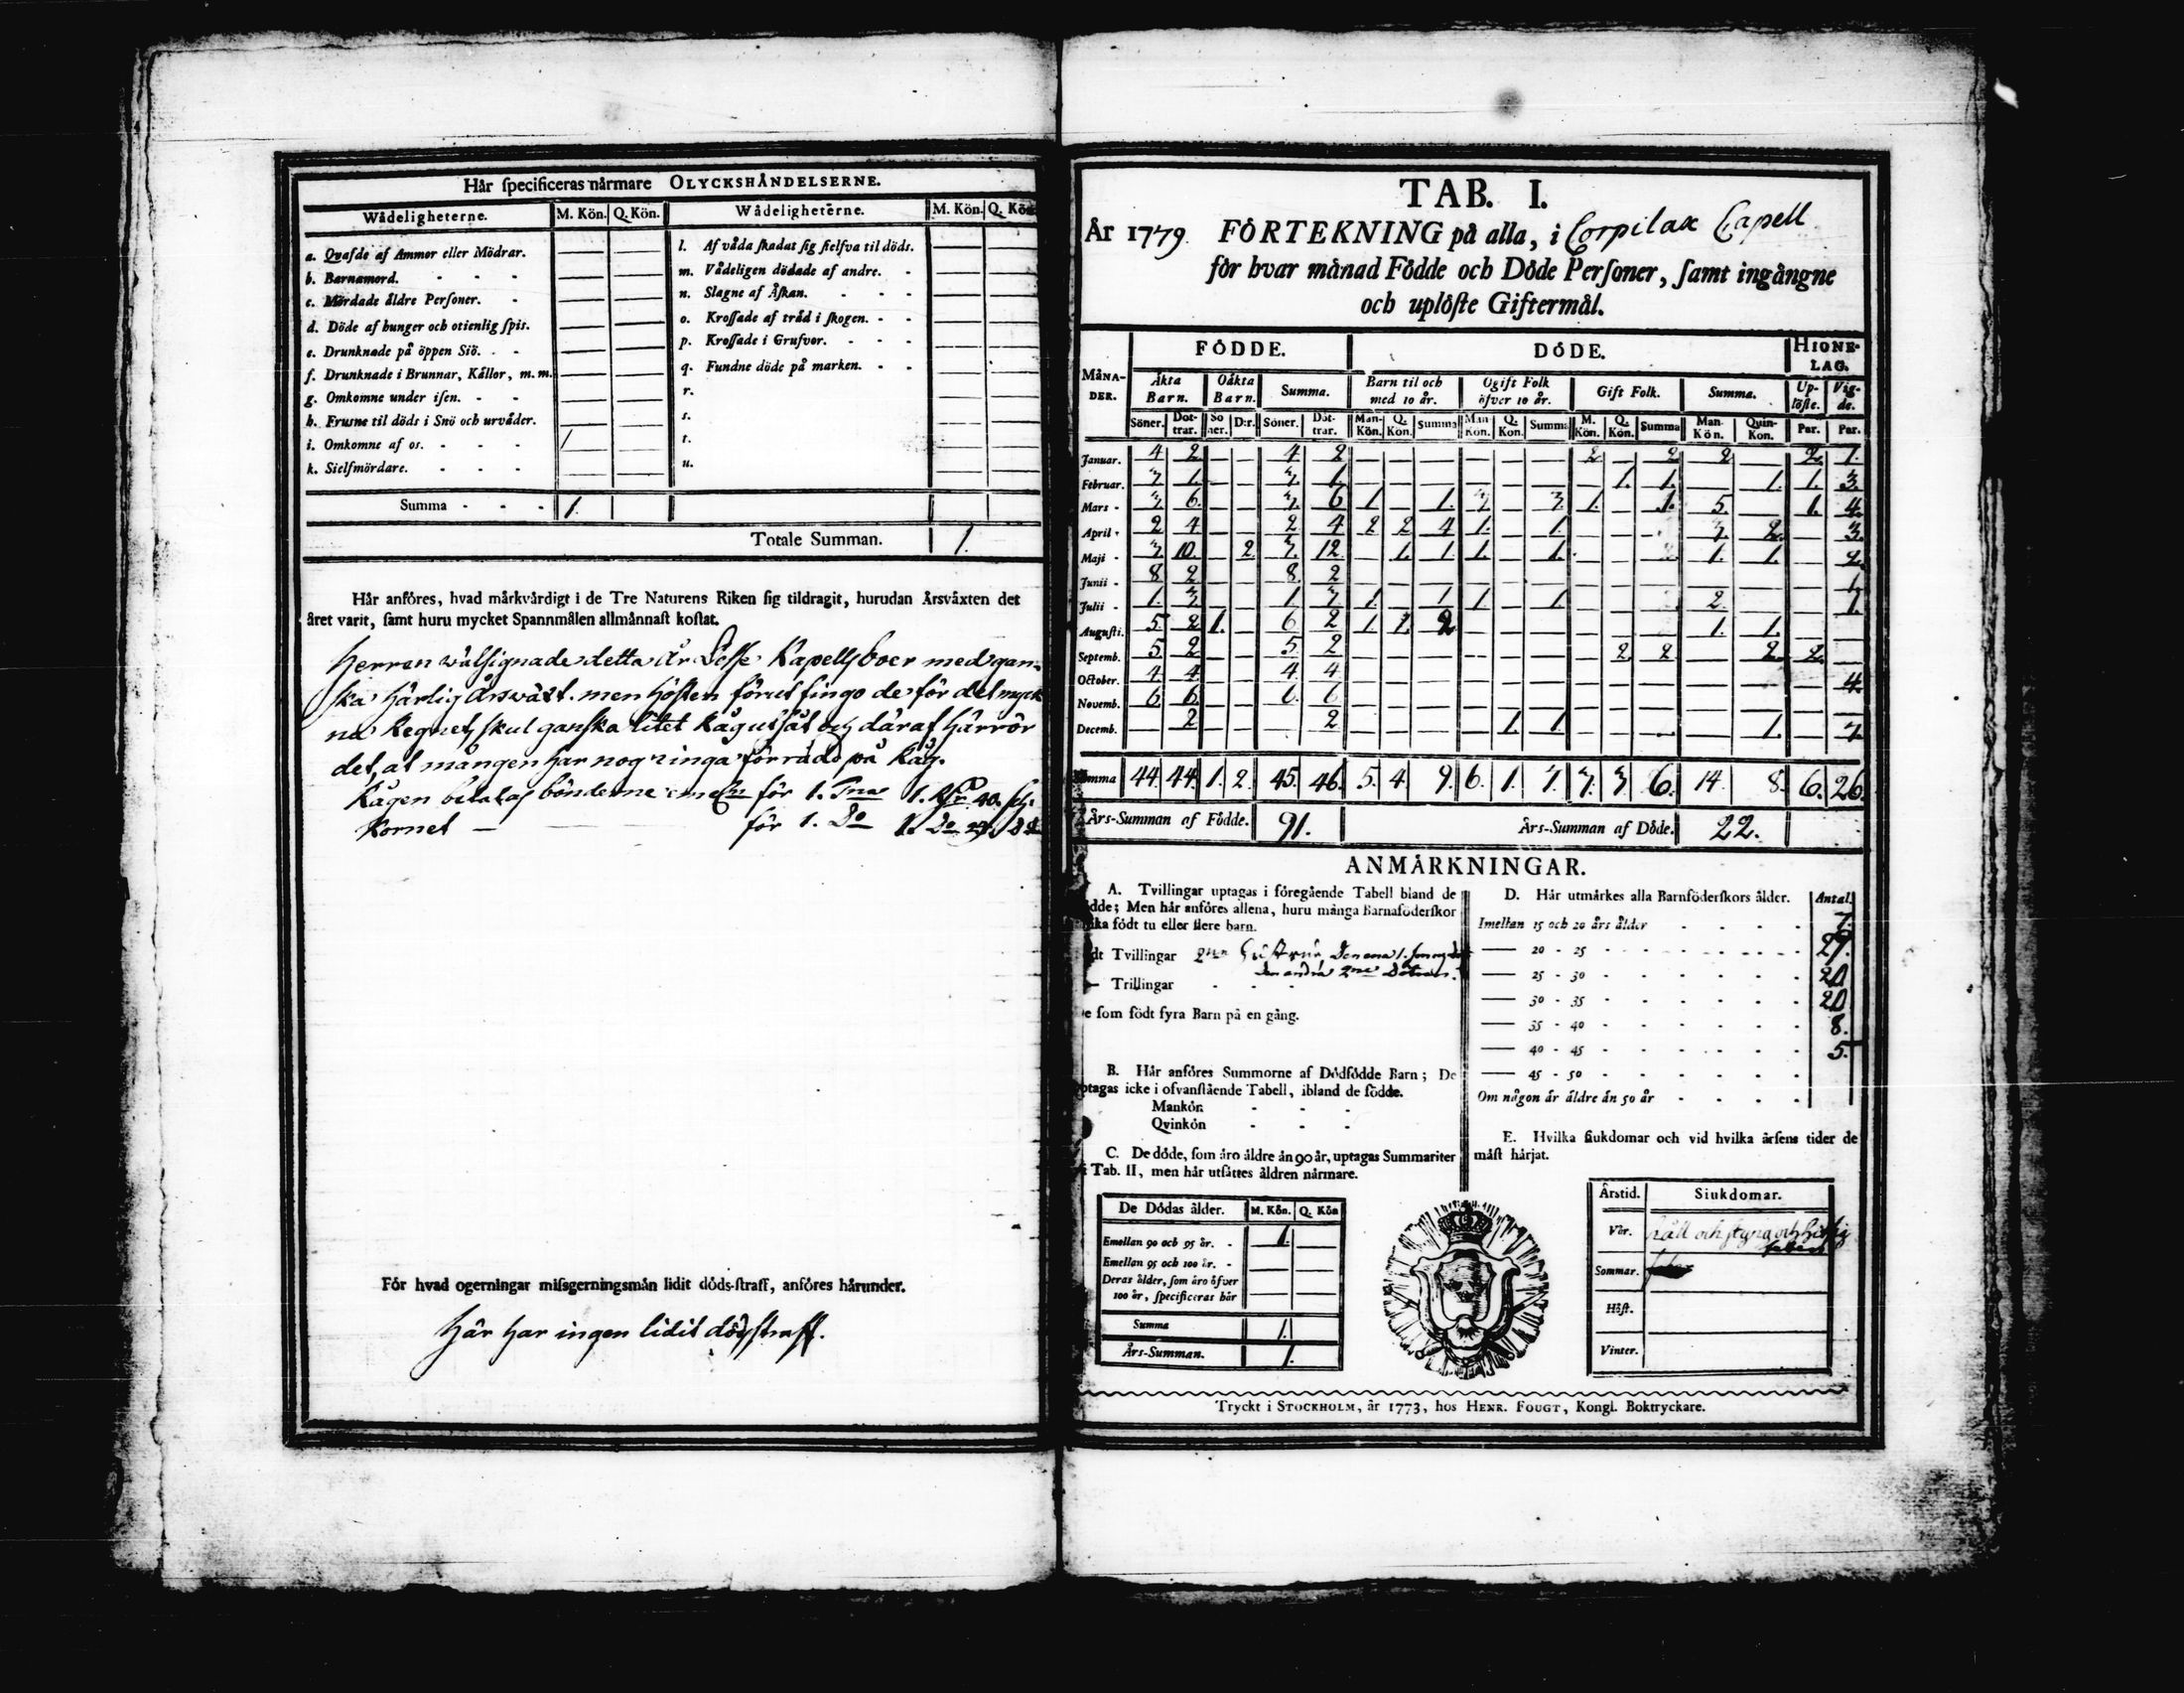 Här specificeras närmare OLYCKSHÄNDELSERNE.
Wådeligheterne. M. Kön. Q. Kön. Wådeligheterne. M. Kön. Q. Kön
a. Qvafde af Ammor eller Mödrar.
b. Barnamord. - - -
c. Mördade äldre Personer. -
d. Döde af hunger och otienlig spis.
e. Drunknade på öppen Siö. - -
f. Drunknade i Brunnar, Källor, m. m.
g. Omkomne under isen. - -
h. Frusne til döds i Snö och urväder.
i. Omkomne af os. - - - 1
k. Sielfmördare. - - -
l. Af våda skadat sig sielfva til döds.
m. Vådeligen dödade af andre. -
n. Slagne af Åskan. - - -
o. Krossade af träd i skogen. - -
p. Krossade i Grufvor. - - -
q. Fundne döde på marken. - -
r.
s.
t.
u.
Summa - - - 1.
Totale Summan. 1.
Här anföres, hvad märkvärdigt i de Tre Naturens Riken sig tildragit, hurudan Årsväxten det
året varit, samt huru mycket Spannmålen allmännast kostat.
Herren wälsignade detta År Kapellsboer med gan-
ska härlig Årswäxt. men hösten förut fingo de för det myck
na Regnets skul ganska litet Råg utsåt och däraf härrör
det, at mången har nog ringa förråd på Råg.
Rågen betalas bönderne emellan för 1. Tna 1. Rdr 40. sch.
Kornet — för 1. Do 1. Do
För hvad ogerningar missgerningsmän lidit döds-straff, anföres härunder.
Här har ingen lidit dödsstraff.
TAB. I.
År 1779. FÖRTEKNING på alla, i Corpilax Capell
för hvar månad Födde och Döde Personer, samt ingångne
och uplöste Giftermål.
MÅNA-DER. FÖDDE. DÖDE. HIONE-LAG.
Äkta Barn. Oäkta Barn. Summa. Barn til och med 10 år. Ogift Folk öfver 10 år. Gift Folk. Summa. Up-löste. Vig-de.
Söner. Dot-trar. Sö ner. D:r. Söner. Dot-trar. Man-Kön. Q. Kön. Summa Man Kön. Q. Kon. Summa M. Kön. Q. Kön. Summa Man-Kön. Quin-Kon. Par. Par.
Januar. 4 2 — — 4 2 — — — — — — 2 — 2 2 — 2. 7.
Februar. 3 1. — — 3. 1. — — — — — — — 1. 1. — 1. 1. 3.
Mars - 3 6. — — 3. 6 1 — 1. 3 — 3. 1. — 1. 5. — 1. 4.
April - 2 4 — — 2 4 2 2 4 1. — 1. — — — 3. 2. — 3.
Maji - 3. 10. — 2. 3. 12. — 1. 1. 1. — 1. — — — 1. 1. — 2.
Junii - 8 2 — — 8. 2 — — — — — — — — — — — — 1.
Julii - 1. 3. — — 1 3 1. — 1 1. — 1. — — — 2. — — 1.
Augusti. 5. 2 1. — 6 2 1. 1. 2 — — — — — — 1. 1. — —
Septemb. 5 2 — — 5. 2 — — — — — — — 2 2 — 2. 2. —
October. 4 4 — — 4 4 — — — — — — — — — — — — 4.
Novemb. 6 6. — — 6. 6 — — — — — — — — — — — — —
Decemb. — 2 — — — 2 — — — — 1. 1. — — — — 1. — 7.
Summa 44. 44. 1. 2. 45. 46. 5. 4. 9. 6. 1. 7. 3. 3 6. 14. 8. 6. 26.
Års-Summan af Födde. 91. Års-Summan af Döde. 22.
ANMÄRKNINGAR.
A. Tvillingar uptagas i föregående Tabell bland de
födde; Men här anföres allena, huru många Barnaföderskor
födt tu eller flere barn.
Tvillingar 2ne Hustrur, Den ena 1. son
Den andra 2ne Döttrar.
— Trillingar - - -
som födt fyra Barn på en gång.
B. Här anföres Summorne af Dödfödde Barn; De
uptagas icke i ofvanstående Tabell, ibland de födde.
Mankön - - -
Qvinkön - - -
C. De döde, som äro äldre än 90 år, uptagas Summariter
i Tab. II, men här utsättes åldren närmare.
De Dödas ålder. M. Kön. Q. Kön
Emellan 90 och 95 år. - 1. —
Emellan 95 och 100 år. - — —
Deras ålder, som äro öfver
100 år, specificeras här — —
Summa 1.
Års-Summan. 1.
D. Här utmärkes alla Barnföderskors ålder. Antal.
Imellan 15 och 20 års ålder - - - - 7.
— 20 - 25 - - - - 29.
— 25 - 30 - - - - 20
— 30 - 35 - - - - 20
— 35 - 40 - - - - 8.
— 40 - 45 - - - - 5.
— 45 - 50 - - - -
Om någon är äldre än 50 år - - - -
E. Hvilka siukdomar och vid hvilka årsens tider de
mäst härjat.
Årstid. Siukdomar.
Vår. håll och styng och hitsig
feber
Sommar.
Höst.
Vinter.
Tryckt i STOCKHOLM, år 1773, hos HENR. FOUGT, Kongl. Boktryckare.